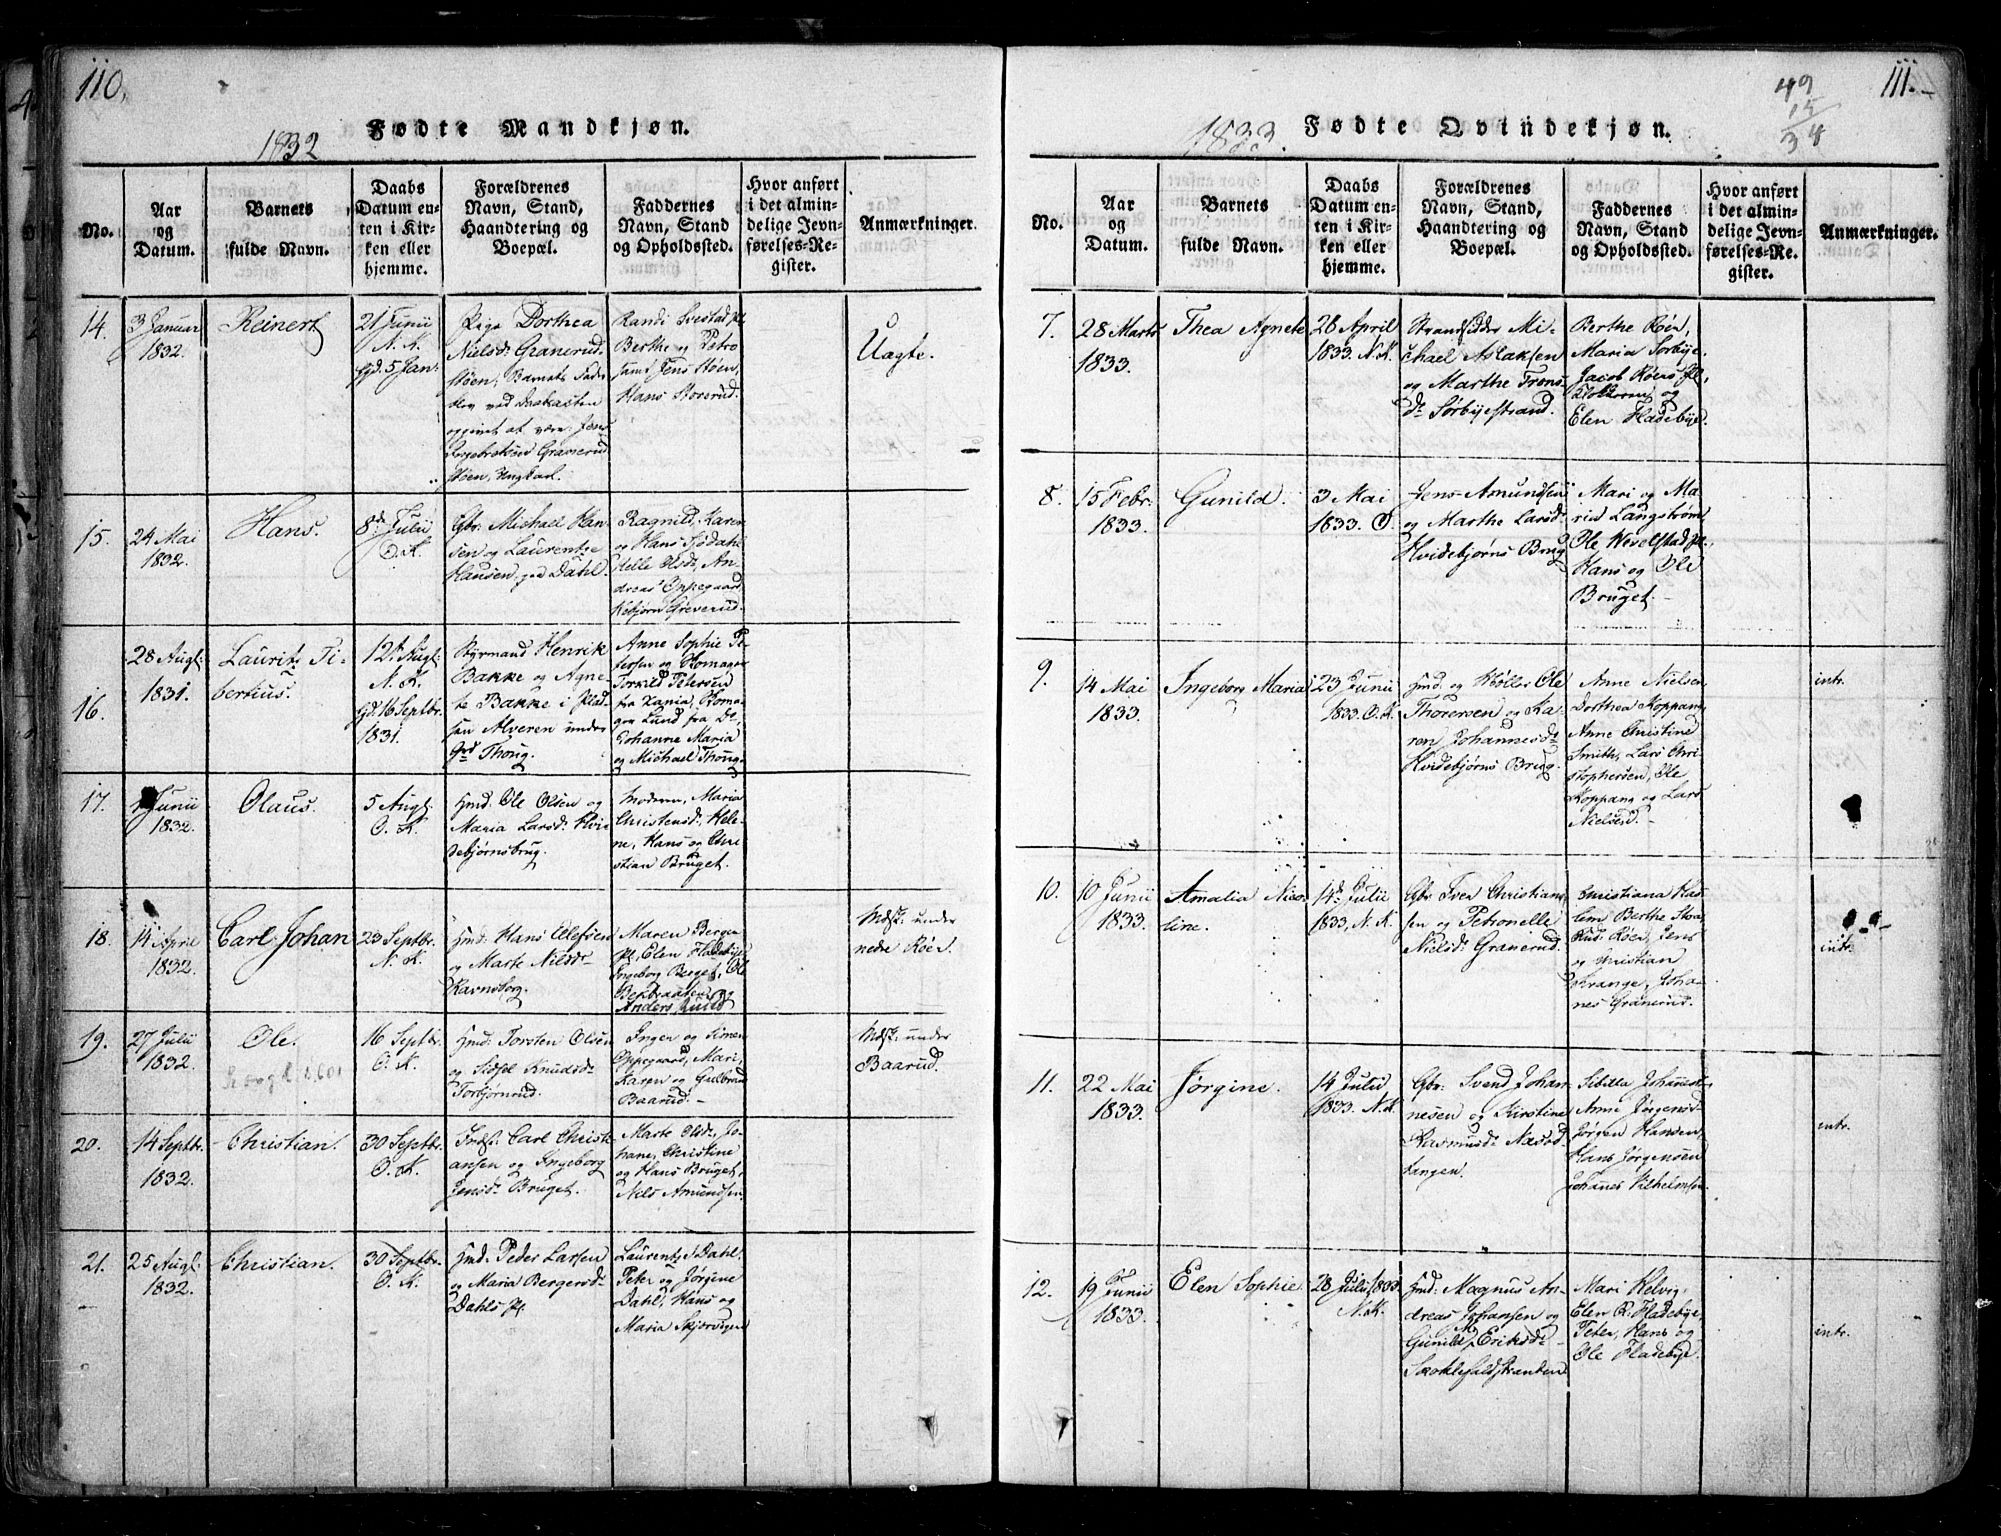 110.
1832
Fødte Mandkjøn.
No.
Aar
og
Datum.
Barnets
fulde Navn.
Daabs
Datum en-
ten i Kir-
ken eller
hjemme.
Forældrenes
Navn, Stand,
Haandtering og
Boepæl.
Faddernes
Navn, Stand
og Opholdssted.
Hvor anført
i det almin-
delige Jevn-
førelses-Re-
gister.
Anmærkninger.
14.
3 Januar
1832.
Reinert
21 Junii
N. K.
hd. 5 Jan.
Pige Dorthea
Nielsd. Granerud-
støen, Barnets Fader
blev ved Daabsacten
opgivet at være Jens
Ingebretsen Granerud
støen, Ungkarl.
Randi Svestad pl.
Berthe og Petro
samt Jens Støen,
Hans Storerud.
Uagte.
15.
24 Mai
1832.
Hans.
8d. Julii
O.K.
Gbr. Michael Han-
sen og Laurentze
Hansen, paa Dahl.
Ragnild, Karen
og Hans Sødahl
Helle Olsdr., An-
dreas Oppegaard
Kebjørn Greverud.
16.
28 Augl:
1831.
Laurits Ti-
bertius.
12t. Augl:
N. K.
hd. 16 Septbr.
1831.
Styrmand Henrik
Bakke og Agne-
te Bakke i Plad-
sen Alveren under
Grd Thoug.
Anne Sophie Pe-
tersen og Homagen
Torkild Petersen
fra Zania, Homa-
gen Lund fra Do.
Johanne Maria
og Michael Thoug.
17.
1 Junii
1832.
Olaus.
5 Augl.
O. K.
Hmd. Ole Olsen og
Maria Larsd: Hvi-
debjørnsbrug.
Moderen, Maria
Christensd., Hele-
ne, Hans og Chri-
stian Bruget.
18.
14 April
1832.
Carl Johan
23 Septbr.
N. K.
Hmd: Hans Olefsen
og Marte Nilsdr.
Ravnsborg.
Maren Bergen
pl. Elen Fladebye,
Ingeborg Berget, Ole
Anders
Mdst: under
nedre Røer.
19.
27 Julii
1832.
Ole.
16 Septbr.
O. K.
Hmd: Torsten Olsen
og Sidsel Knudsd.
Torbjørnrud.
Ingen og Simen
Oppegaard, Mari,
Karen og Gulbrand
Baarud. -
Mdst: under
Baarud.
20.
14 Septbr.
1832.
Christian.
30 Septbr.
O. K.
Indst: Carl Christi-
ansen og Ingeborg
Jensdr. Bruget.
Marte Olsdr. Jo-
hane, Christine
og Hans Bruget,
Nils Amundsen.
21.
25 Augl:
1832.
Christian.
30 Septbr.
O. K.
Hmd: Peder Larsen
og Maria Bergersdr.
Dahls pl.
Laurentze Dahl.
Peter og Jørgine
Dahl, Hans og
Maria Skjærvigen
111.
49
15
34
1833.
Fødte Qvindekjøn.
No.
Aar
og
Datum.
Barnets
fulde Navn.
Daabs
Datum en-
ten i Kir-
ken eller
hjemme.
Forældrenes
Navn, Stand,
Haandtering og
Boepæl.
Faddernes
Navn, Stand
og Opholdssted.
Hvor anført
i det almin-
delige Jevn-
førelses-Re-
gister.
Anmærkninger.
7.
28 Marts
1833.
Thea Agnete
28 April
1833. N.K.
Strandsidder Mi-
chael Aslaksen
og Marthe Trons-
dr. Sørbyestrand.
Berthe Røer,
Maria Sørbye,
Jacob Røers pl,
og
Elen Fladebye.
8.
15 Febr.
1833.
Gunild.
3 Mai
1833. O.
Jens Amundsen
og Marthe Larsd.
Hvidebjørns Brug
Mari og Ma-
ria Langstrøm,
Ole Kevelstad pl.,
Hans og Ole
Bruget. -
9.
14 Mai
1833.
Ingeborg Maria
23 Junii
1833. O. K.
Hmd: og Møller Ole
Thoresen og Ka-
ren Johannesdr.
Hvidebjørns Brug.
Anne Nielsen
Dorthea Koppang,
Anne Christine
Smith, Lars Chri-
stophersen, Ole
Koppang og Lars
Nielsen. -
intr.
10.
10 Junii
1833.
Amalia Nico-
line.
14d. Julii
1833, N. K.
Gbr Iver Christian-
sen og Petronelle
Nielsdr. Granerud.
Christiana
Berthe
Røer, Jens
og Christian
Johan-
nes Granerud.
intr.
11.
22 Mai
1833.
Jørgine.
14 Julii
1833. N.K.
Gbr: Svend Johan-
nesen og Kirstine
Rasmusdr. Næsod-
tangen.
Sibille Johannesd.
Anne Jørgensd.
Jørgen Hansen,
Hans Jørgensen
Johanes Vilhelmsen.
intr.
12.
19 Junii
1833.
Elen Sophie
28 Julii 1833
N. K.
Hmd: Magnus An-
dreas Johansen og
Gunild Eriksdr.
Skoklefaldstranden
Mari Helvig,
Elen R. Fladebye,
Peter, Hans og
Ole Fladebye.
intr.